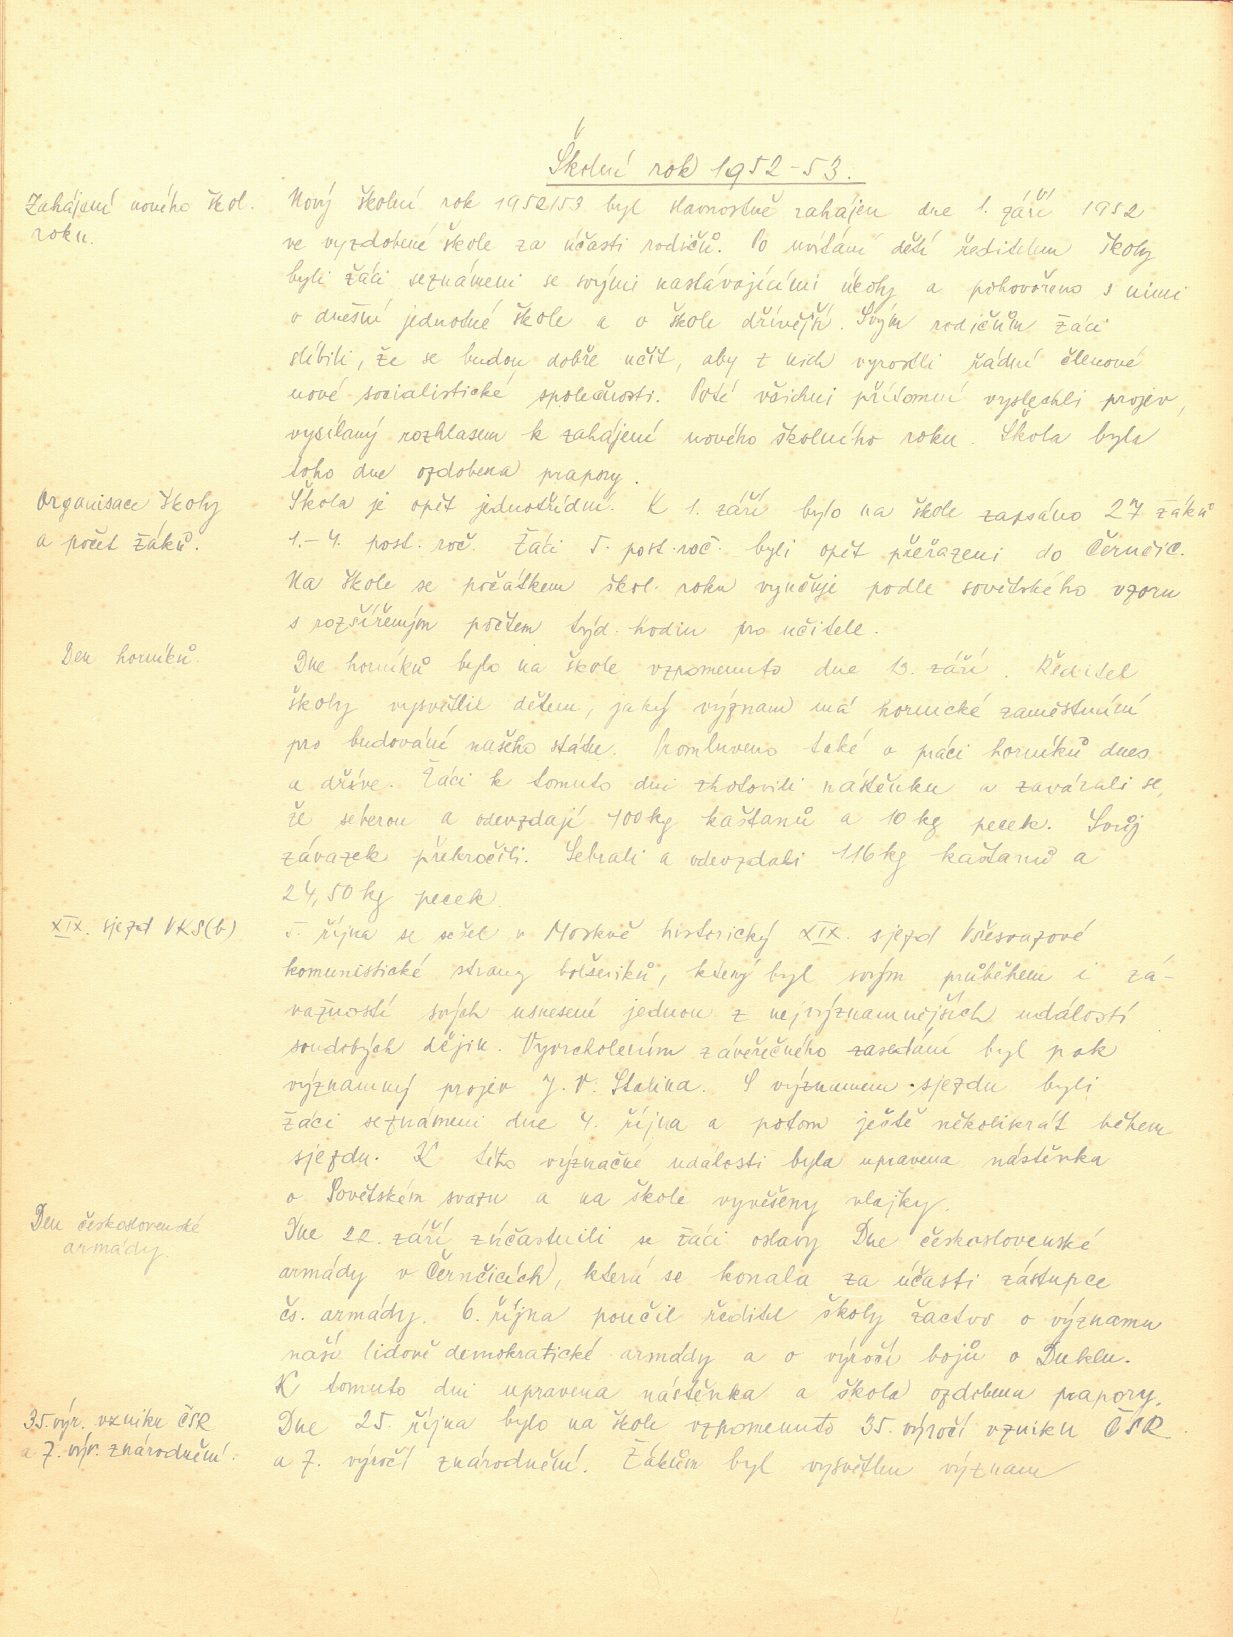 Školní rok 1952-53.
Zahájení nového škol.
roku.
Nový školní rok 1952/53 byl slavnostně zahájen dne 1. září 1952
ve vyzdobené škole za účasti rodičů. Po uvítání dětí ředitelem školy
byli žáci seznámeni se svými nastávajícími úkoly a pohovořeno s nimi
o dnešní jednotné škole a o škole dřívější. Svým rodičům žáci
slíbili, že se budou dobře učit, aby z nich vyrostli řádní členové
nové socialistické společnosti. Poté všichni přítomní vyslechli projev,
vysílaný rozhlasem k zahájení nového školního roku. Škola byla
toho dne ozdobena prapory.
Organisace školy
a počet žáků.
Škola je opět jednotřídní. K 1. září bylo na škole zapsáno 27 žáků
1.-4. post. roč. Žáci 5. post. roč. byli opět přeřazeni do Černčic.
Na škole se počátkem škol. roku vyučuje podle sovětského vzoru
s rozšířeným počtem týd. hodin pro učitele.
Den horníků.
Dne horníků bylo na škole vzpomenuto dne 13. září. Ředitel
školy vysvětlil dětem, jaký význam má hornické zaměstnání
pro budování našeho státu. Promluveno také o práci horníků dnes
a dříve. Žáci k tomuto dni zhotovili nástěnku a zavázali se,
že seberou a odevzdají 100 kg kaštanů a 10 kg pecek. Svůj
závazek překročili. Sebrali a odevzdali 116 kg kaštanů a
24,50 kg pecek.
XIX. sjezd VKS(b)
5. října se sešel v Moskvě historický XIX. sjezd Všesvazové
komunistické strany bolševiků, který byl svým průběhem i zá-
važností svých usnesení jednou z nejvýznamnějších událostí
soudobých dějin. Vyvrcholením závěrečného zasedání byl pak
významný projev J. V. Stalina. S významem sjezdu byli
žáci seznámeni dne 4. října a potom ještě několikrát během
sjezdu. K této význačné události byla upravena nástěnka
o Sovětském svazu a na škole vyvěšeny vlajky.
Den československé
armády.
Dne 22. září zúčastnili se žáci oslavy Dne československé
armády v Černčicích, která se konala za účasti zástupce
čs. armády. 6. října poučil ředitel školy žactvo o významu
naší lidově demokratické armády a o výročí bojů o Duklu.
K tomuto dni upravena nástěnka a škola ozdobena prapory.
35. výr. vzniku ČSR
a 7. výr. znárodnění.
Dne 25. října bylo na škole vzpomenuto 35. výročí vzniku ČSR
a 7. výročí znárodnění. Žákům byl vysvětlen význam